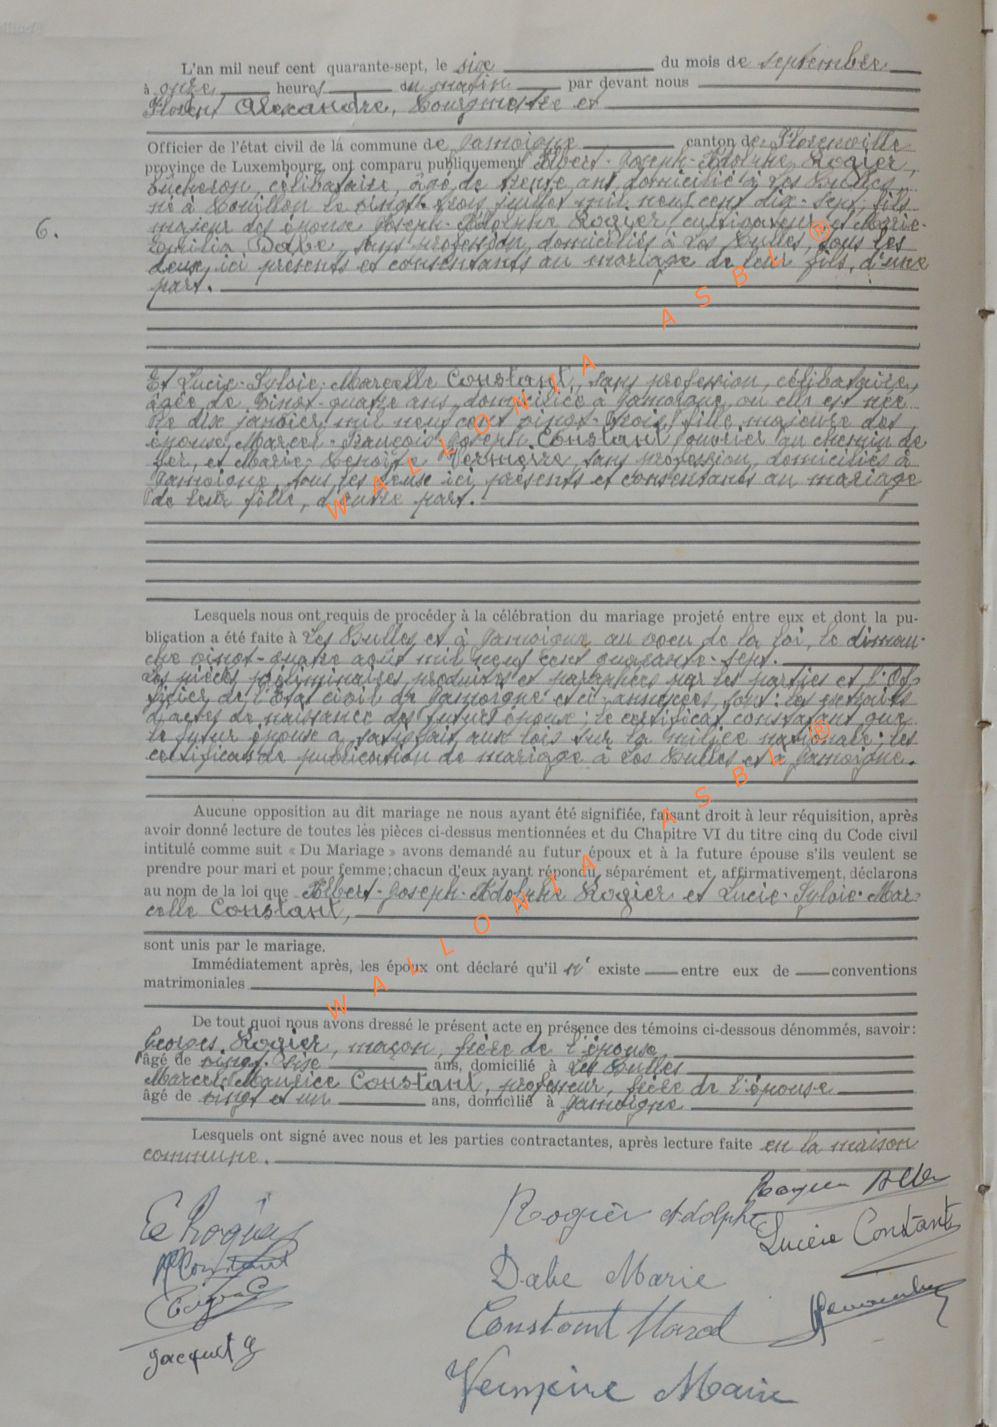 L'an mil neuf cent quarante-sept, le six du mois de septembre
à onze heures du matin par devant nous
Florent Alexandre, Bourgmestre et
Officier de l'état civil de la commune de Jamoigne canton de Florenville
province de Luxembourg, ont comparu publiquement Albert-Joseph-Adolphe Rogier,
bucheron, célibataire, âgé de trente ans, domicilié à Les Bulles,
né à Bouillon le vingt-trois juillet mil neuf cent dix-sept, fils
majeur des époux Joseph-Adolphe Rogier, cultivateur, et Marie-
6.
Emilia Dabe, sans profession, domiciliés à Les Bulles, tous les
deux ici présents et consentants au mariage de leur fils, d'une
part.
Et Lucie-Sylvie-Marcelle Constant, sans profession, célibataire,
âgée de vingt-quatre ans, domiciliée à Jamoigne, où elle est née
le dix janvier mil neuf cent vingt-trois, fille majeure des
époux Marcel-François-Joseph Constant, ouvrier au chemin de
fer, et Marie Vermeire, sans profession, domiciliés à
Jamoigne, tous les deux ici présents et consentants au mariage
de leur fille, d'autre part.
Lesquels nous ont requis de procéder à la célébration du mariage projeté entre eux et dont la pu-
blication a été faite à Les Bulles et à Jamoigne, au voeu de la loi, le diman-
che vingt-quatre août mil neuf cent quarante-sept.
Les pièces préliminaires produites et paraphées par les parties et l'Of-
ficier de l'Etat civil de Jamoigne et ci annexées, sont: les extraits
d'actes de naissance des futurs époux; le certificat constatant que
le futur époux a satisfait aux lois sur la milice nationale; les
certificats de publication de mariage à Les Bulles et à Jamoigne.
Aucune opposition au dit mariage ne nous ayant été signifiée, faisant droit à leur réquisition, après
avoir donné lecture de toutes lés pièces ci-dessus mentionnées et du Chapitre VI du titre cinq du Code civil
intitulé comme suit « Du Mariage » avons demandé au futur époux et à la future épouse s'ils veulent se
prendre pour mari et pour femme; chacun d'eux ayant répondu séparément et affirmativement, déclarons
au nom de la loi que Albert-Joseph-Adolphe Rogier et Lucie-Sylvie-Mar-
celle Constant,
sont unis par le mariage.
Immédiatement après, les époux ont déclaré qu'il n' existe entre eux de conventions
matrimoniales
De tout quoi nous avons dressé le présent acte en présence des témoins ci-dessous dénommés, savoir:
Georges Rogier, maçon, frère de l'époux
âgé de vingt-six ans, domicilié à Les Bulles
Marcel-Maurice Constant, professeur, frère de l'épouse
âgé de vingt et un ans, domicilié à Jamoigne
Lesquels ont signé avec nous et les parties contractantes, après lecture faite en la maison
commune.
Rogier Adolphe
Lucie Constant
Constant
Dabe Marie
Constant Marcel
Jacquet G
Vermeire Marie
WALLONIA ASBL ®
WALLONIA ASBL ®